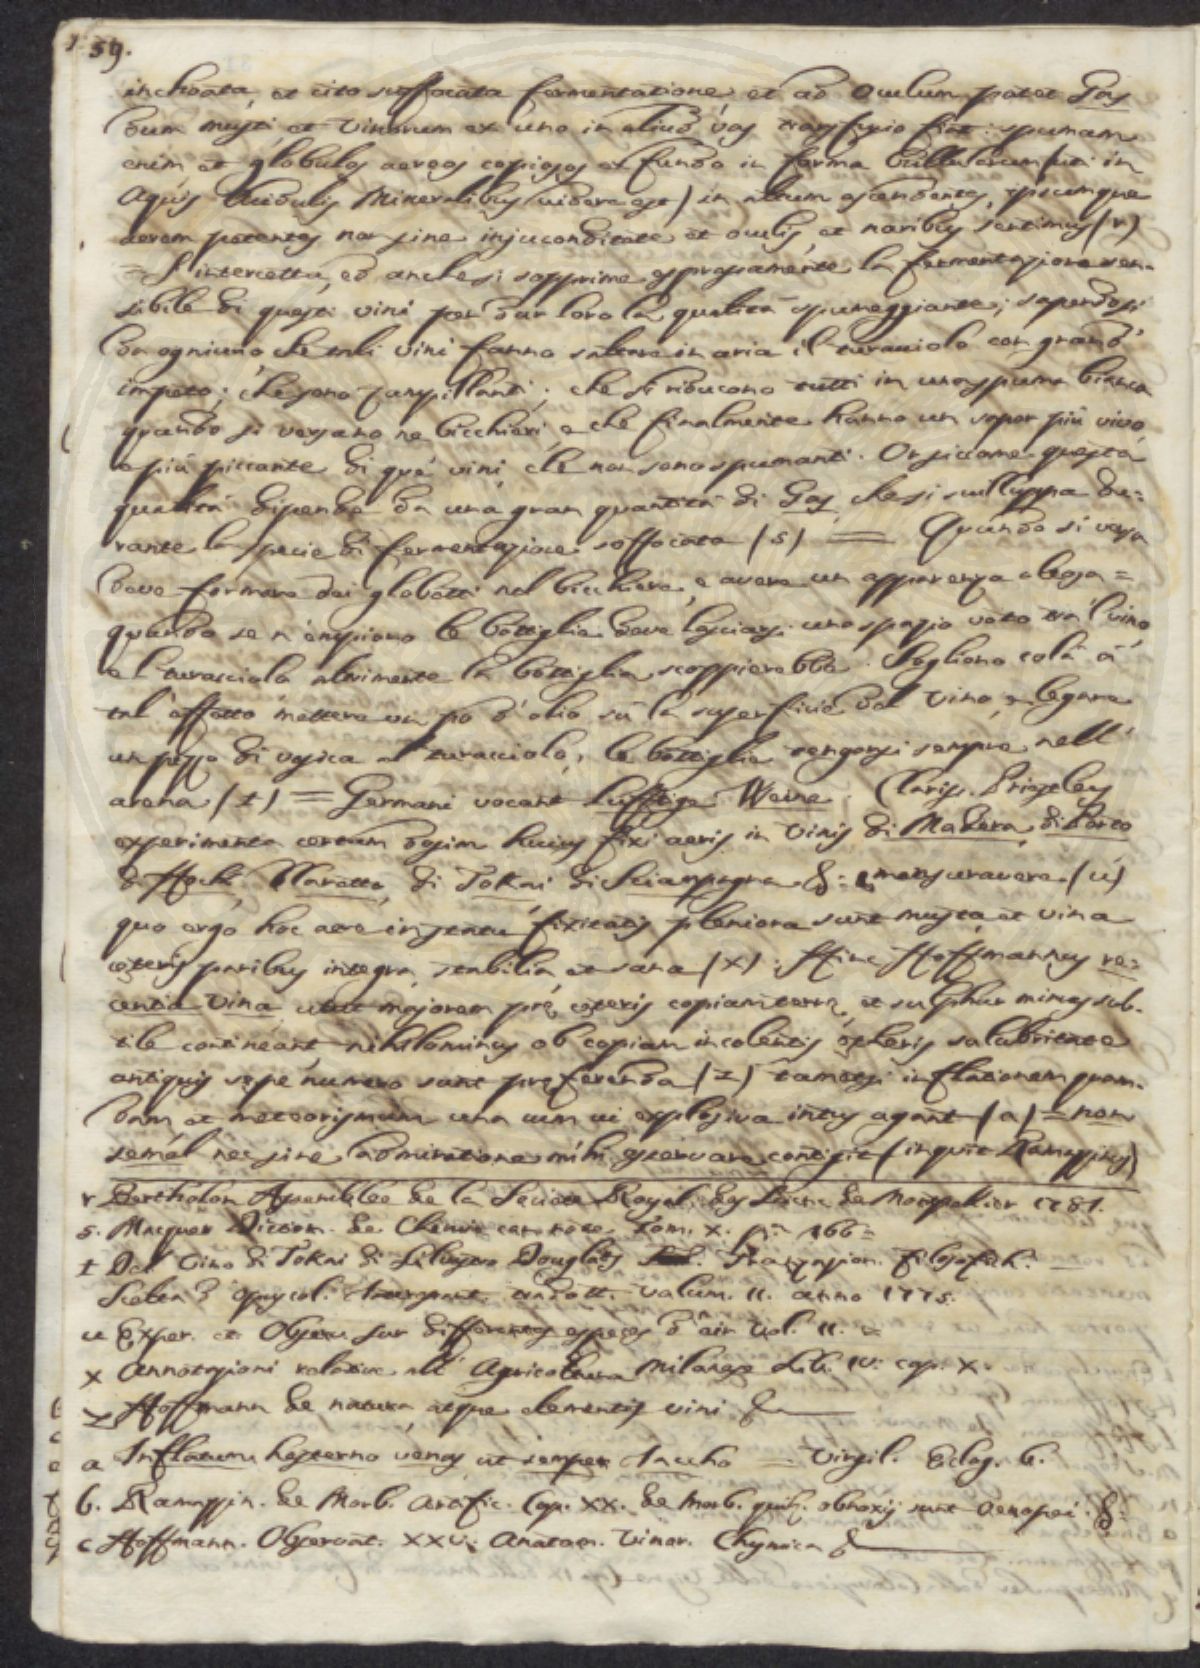 59.
inchoata, et cito suffocata fermentatione, et ad Oculum patet Gas
dum musti et Vinorum ex uno in aliud vas transfusio fiat: spumam
enim et globulos aereos copiosos ex fundo in forma bullularum (uti in
Aquis Acidulis Mineralibus videre est) in altum ascendentes, ipsumque
aerem petentes non sine injucunditate et oculis, et naribus sentimus (r)
= S'intercetta, ed anche si sopprime espressamente la fermentazione sen-
sibile di questi vini per dar loro la qualità spumeggiante; sapendosi
da ogniuno che tali vini fanno saltare in aria il turacciolo con grand'
impeto; che sono zampillanti; che si riducono tutti in una spuma bianca
quando si versano ne bicchieri, e che finalmente hanno un sapor più vivo,
e più piccante di que' vini, che non sono spumanti. Or siccome questa
qualità dipende da una gran quantità di Gas, che si sviluppa du=
rante la specie di fermentazione soffocata (s) = Quando si versa
deve formare dei globetti nel bicchiere, e avere un apparenza oleosa =
quando se n'empiono le bottiglie deve lasciarsi uno spazio voto tra 'l vino,
e l'turacciolo altrimente la bottiglia scoppierebbe. Sogliono colà a
tal effetto mettere un po d'olio sù la superficie del Vino, e legare
un pezzo di vesica al turacciolo, le bottiglie tengonsi sempre nell'
arena (t) = Germani vocant Lufftige Weine. Clariss. Priestley
experimenta certam dosim huius fixi aeris in Vinis di Madera, di Porto
di Hock, Claretto, di Tokai, di Sciampagna &: mensuravere (u)
quo ergo hoc aere ... fixitatis pleniora sunt musta, et vina
cęteris paribus integra, stabilia, et sana (x): Hinc Hoffmannus re=
centia Vina utut majorem prę cęteris copiam terrę, et sulphur minus sub-
tile contineant, nihilominus ob copiam incolentis ętheris salubritate
antiquis sępe numero sunt pręferenda (z) tametsi inflationem quam-
dam et meteorismum una cum vi explosiva intus agant (a) = non
semel nec sine admiratione mihi observare contigit (inquit Ramazzinus)
r Bertholon Assemblee de la Societe Royal. des Scienc. de Montpelier 1781.
s. Macquer Diction. de Chimie con note. Tom. X. p: 166 =
t Del Vino di Tokai di Silvestro Douglass. Transazion. Filosofich.
Scelta d'Opuscol. Interessant. tradott. Volum. 11. anno 1775.
u Exper. et Observ. sur differentes especes d'air Vol. 11. =
x Annotazioni relative all' Agricoltura Milanese Lib. IV: cap. X.
z Hoffmann de natura, atque elementis vini &
a Inflatum hesterno venas, ut semper Iaccho = Virgil. Eclog. 6.
b. Ramazzin. de Morb. Artific. Cap. XX. de Morb. quib. obnoxij sunt Oenopei &:
c Hoffmann. Observat. XXV. Anatom. Vinor. Chymica &